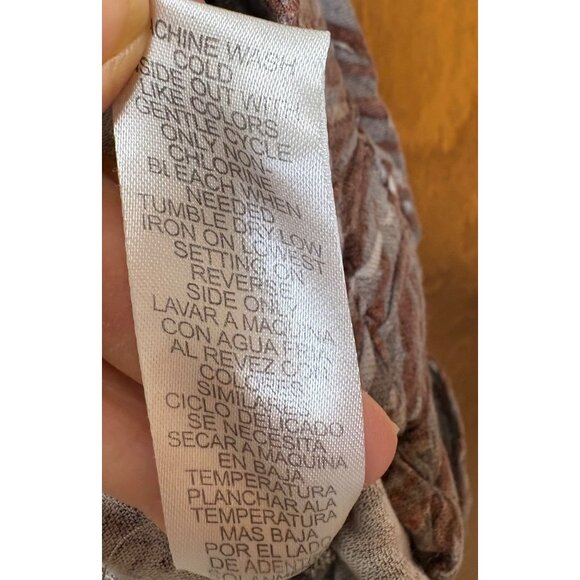 CHINE WASH
COLD
SIDE OUT WITH
LIKE COLORS
GENTLE CYCLE
ONLY NON
CHLORINE
BLEACH WHEN
NEEDED
TUMBLE DRY LOW
IRON ON LOWEST
SETTING ON
REVERSE
SIDE ONLY
LAVAR A MAQUINA
CON AGUA FRIA
AL REVEZ CON
COLORES
SIMILARES
CICLO DELICADO
SE NECESITA
SECAR A MAQUINA
EN BAJA
TEMPERATURA
PLANCHAR ALA
TEMPERATURA
MAS BAJA
POR EL LADO
DE ADENT